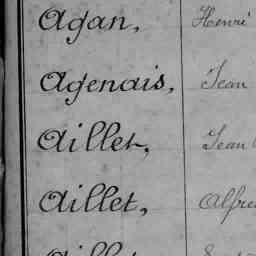 Agan, Henri
Agenais, Jean
Aillet, Jean
Aillet, Alfre
Aillet